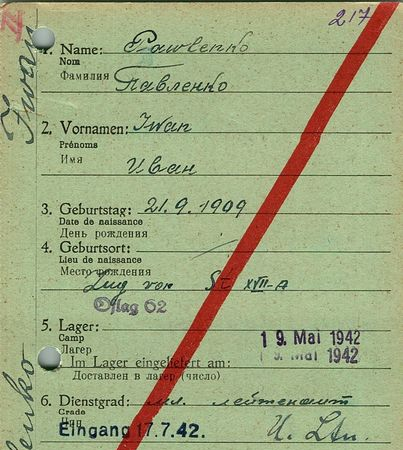 217
II
Iwan
1. Name: Pawlenko
Nom
Фамилия Павленко
2. Vornamen: Iwan
Prénoms
Имя Иван
3. Geburtstag: 21.9.1909
Date de naissance
День рождения
4. Geburtsort:
Lieu de naissance
Место рождения
Zug von St XVII-A
Oflag 62
5. Lager:
Camp
Лагерь
19. Mai 1942
19. Mai 1942
Im Lager eingeliefert am:
Доставлен в лагерь (число)
6. Dienstgrad: мл. лейтенант
Grade
Чин
Eingang 17.7.42. U. Ltn.
lenko